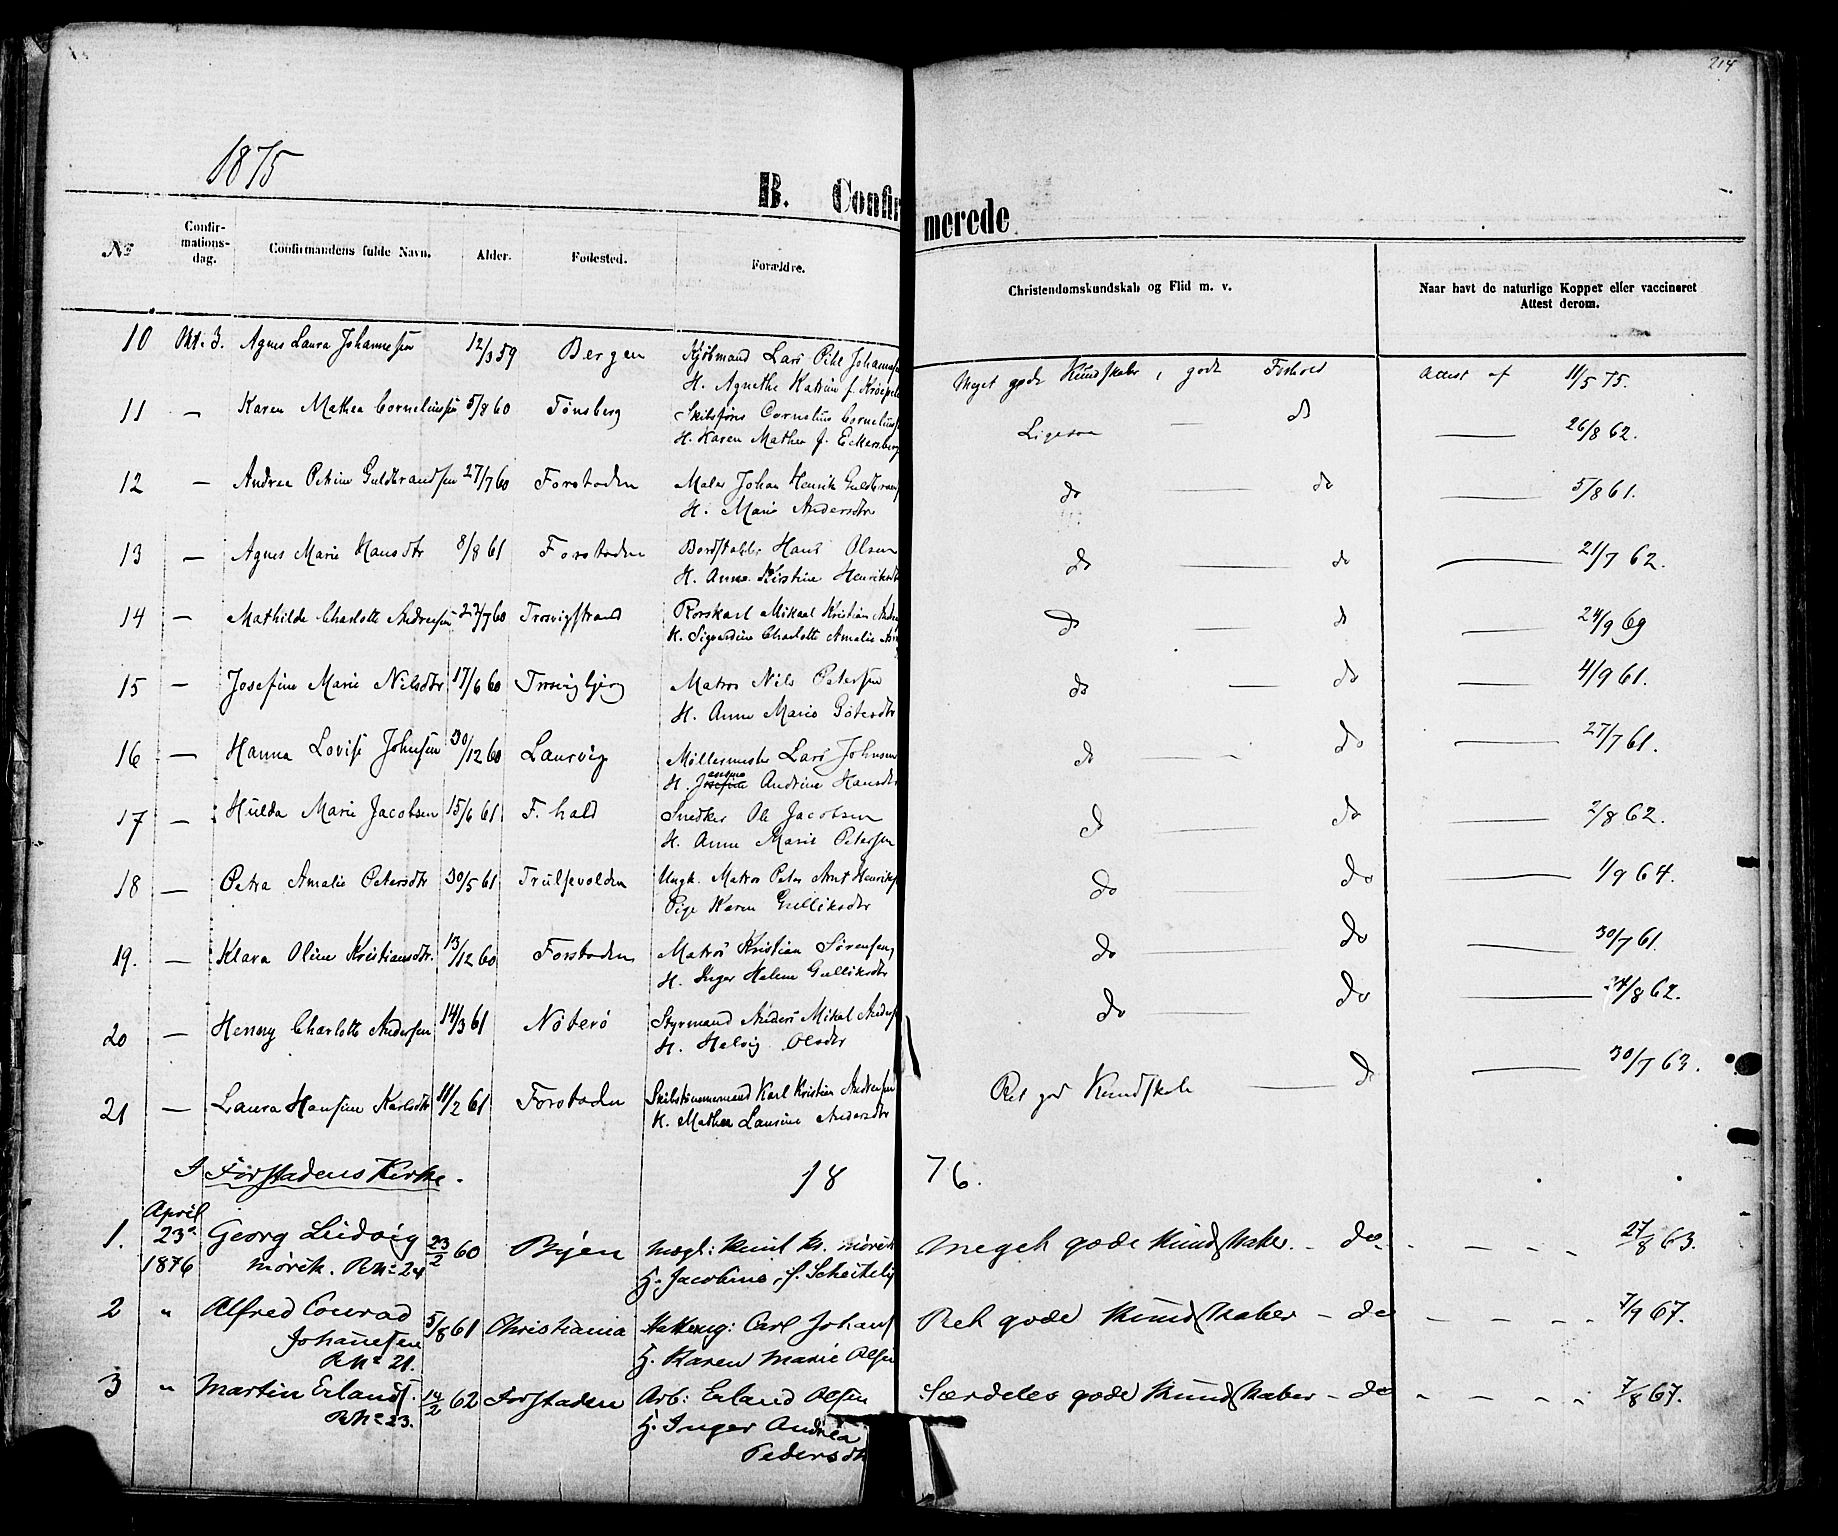 214
1875
B. Confirmerede.
No
Confirmationsdag.
Confirmandens fulde Navn.
Alder.
Fødested.
Forældre.
Christendomskundskab og Flid m. v.
Naar havt de naturlige Kopper eller vaccineret
Attest derom.
10 Okt. 3. Agnes Laura Johannesen 12/3 59 Bergen Kjøbmand Lars Johannes Meget gode Kundskaber, godt Forhold Attest af 11/5 75.
H. Agnethe Katrine f.
11 — Karen Mathea Corneliussen 5/8 60 Tønsberg Skibsfører Cornelius Cornelius Ligesaa — do — 26/8 62.
H. Karen Mathea f. Eckersberg
12 — Andrea Petrine Guldbrandsen 27/7 60 Forstaden Maler Johan Henrik Guldbrands do — do — 5/8 61.
H. Marie Andersdtr
13 — Agnes Marie Hansdtr 8/8 61 Forstaden Hans Olsen do — do — 21/7 62.
H. Anne Kirstine Henriksdt
14 — Mathilde Charlotte Andresen 22/7 60 Trosvigstrand Rorskarl Mikael Kristian Andre do — do — 24/9 69
H. Charlotte Amalie
15 — Josefine Marie Nilsdtr 17/6 60 Trosvigbjerg Matros Nils Petersen do — do — 4/9 61.
H. Anne Marie
16 — Hanna Lovise Johnsen 30/12 60 Laurvig Møllermester Lars Johnsen do — do — 27/7 61.
H. Andrine Hansdtr
17 — Hulda Marie Jacobsen 15/6 61 F. hald Snedker Ole Jacobsen do — do — 2/8 62.
H. Anne Marie Petersen
18 — Petra Amalie Petersdtr 30/5 61 Trulsevolden Ungk. Matros Peter Arnt Henriks do — do — 1/9 64.
Pige Karen Gulliksdtr
19. — Klara Oline Kristiansdtr. 13/12 60 Forstaden Matros Kristian Sørensen, do — do — 30/7 61.
H. Inger Helene Gulliksdtr
20 — Henny Charlotte Andersen 14/3 61 Nøterø Styrmand Anders Mikal Anders do — do — 24/8 62.
H. Helvig Olsdtr
21 — Laura Hansine Karlsdtr 11/2 61 Forstaden Skibstømmermand Karl Kristian Andresen Ret god Kundskab — do — 30/7 63.
H. Mathea Laurine Andersdtr
I Forstadens Kirke. 1876.
1. April 23de 1876 Georg Ludvig 23/2 60 Byen Mægl: Knut Kr. Mørik Meget gode Kundskaber. - do. - - - - 27/8 63.
Mørik. R No 24 H. Jacobine, f.
2 " Alfred Conrad 5/8 61 Christiania Carl Johans Ret gode Kundskaber - do - - - - 7/9 67.
Johannesen H. Karen Marie Olsen
R No 21.
3 " Martin Erlands. 14/2 62 Forstaden Arb: Erland Olsen Særdeles gode Kundskaber - do - - - - 7/8 67.
R No 23. H. Inger Andrea
Pedersdtr